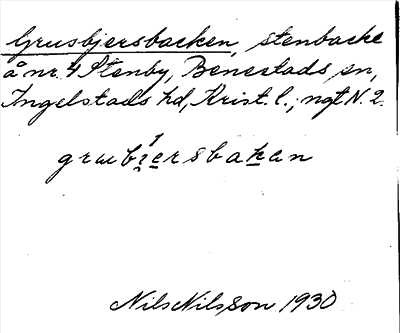 Grusbjersbacken, stenbacke
å nr. 4 Stenby, Benestads sn,
Ingelstads hd, Krist. l., ngt N. 2.
Nils Nilsson 1930